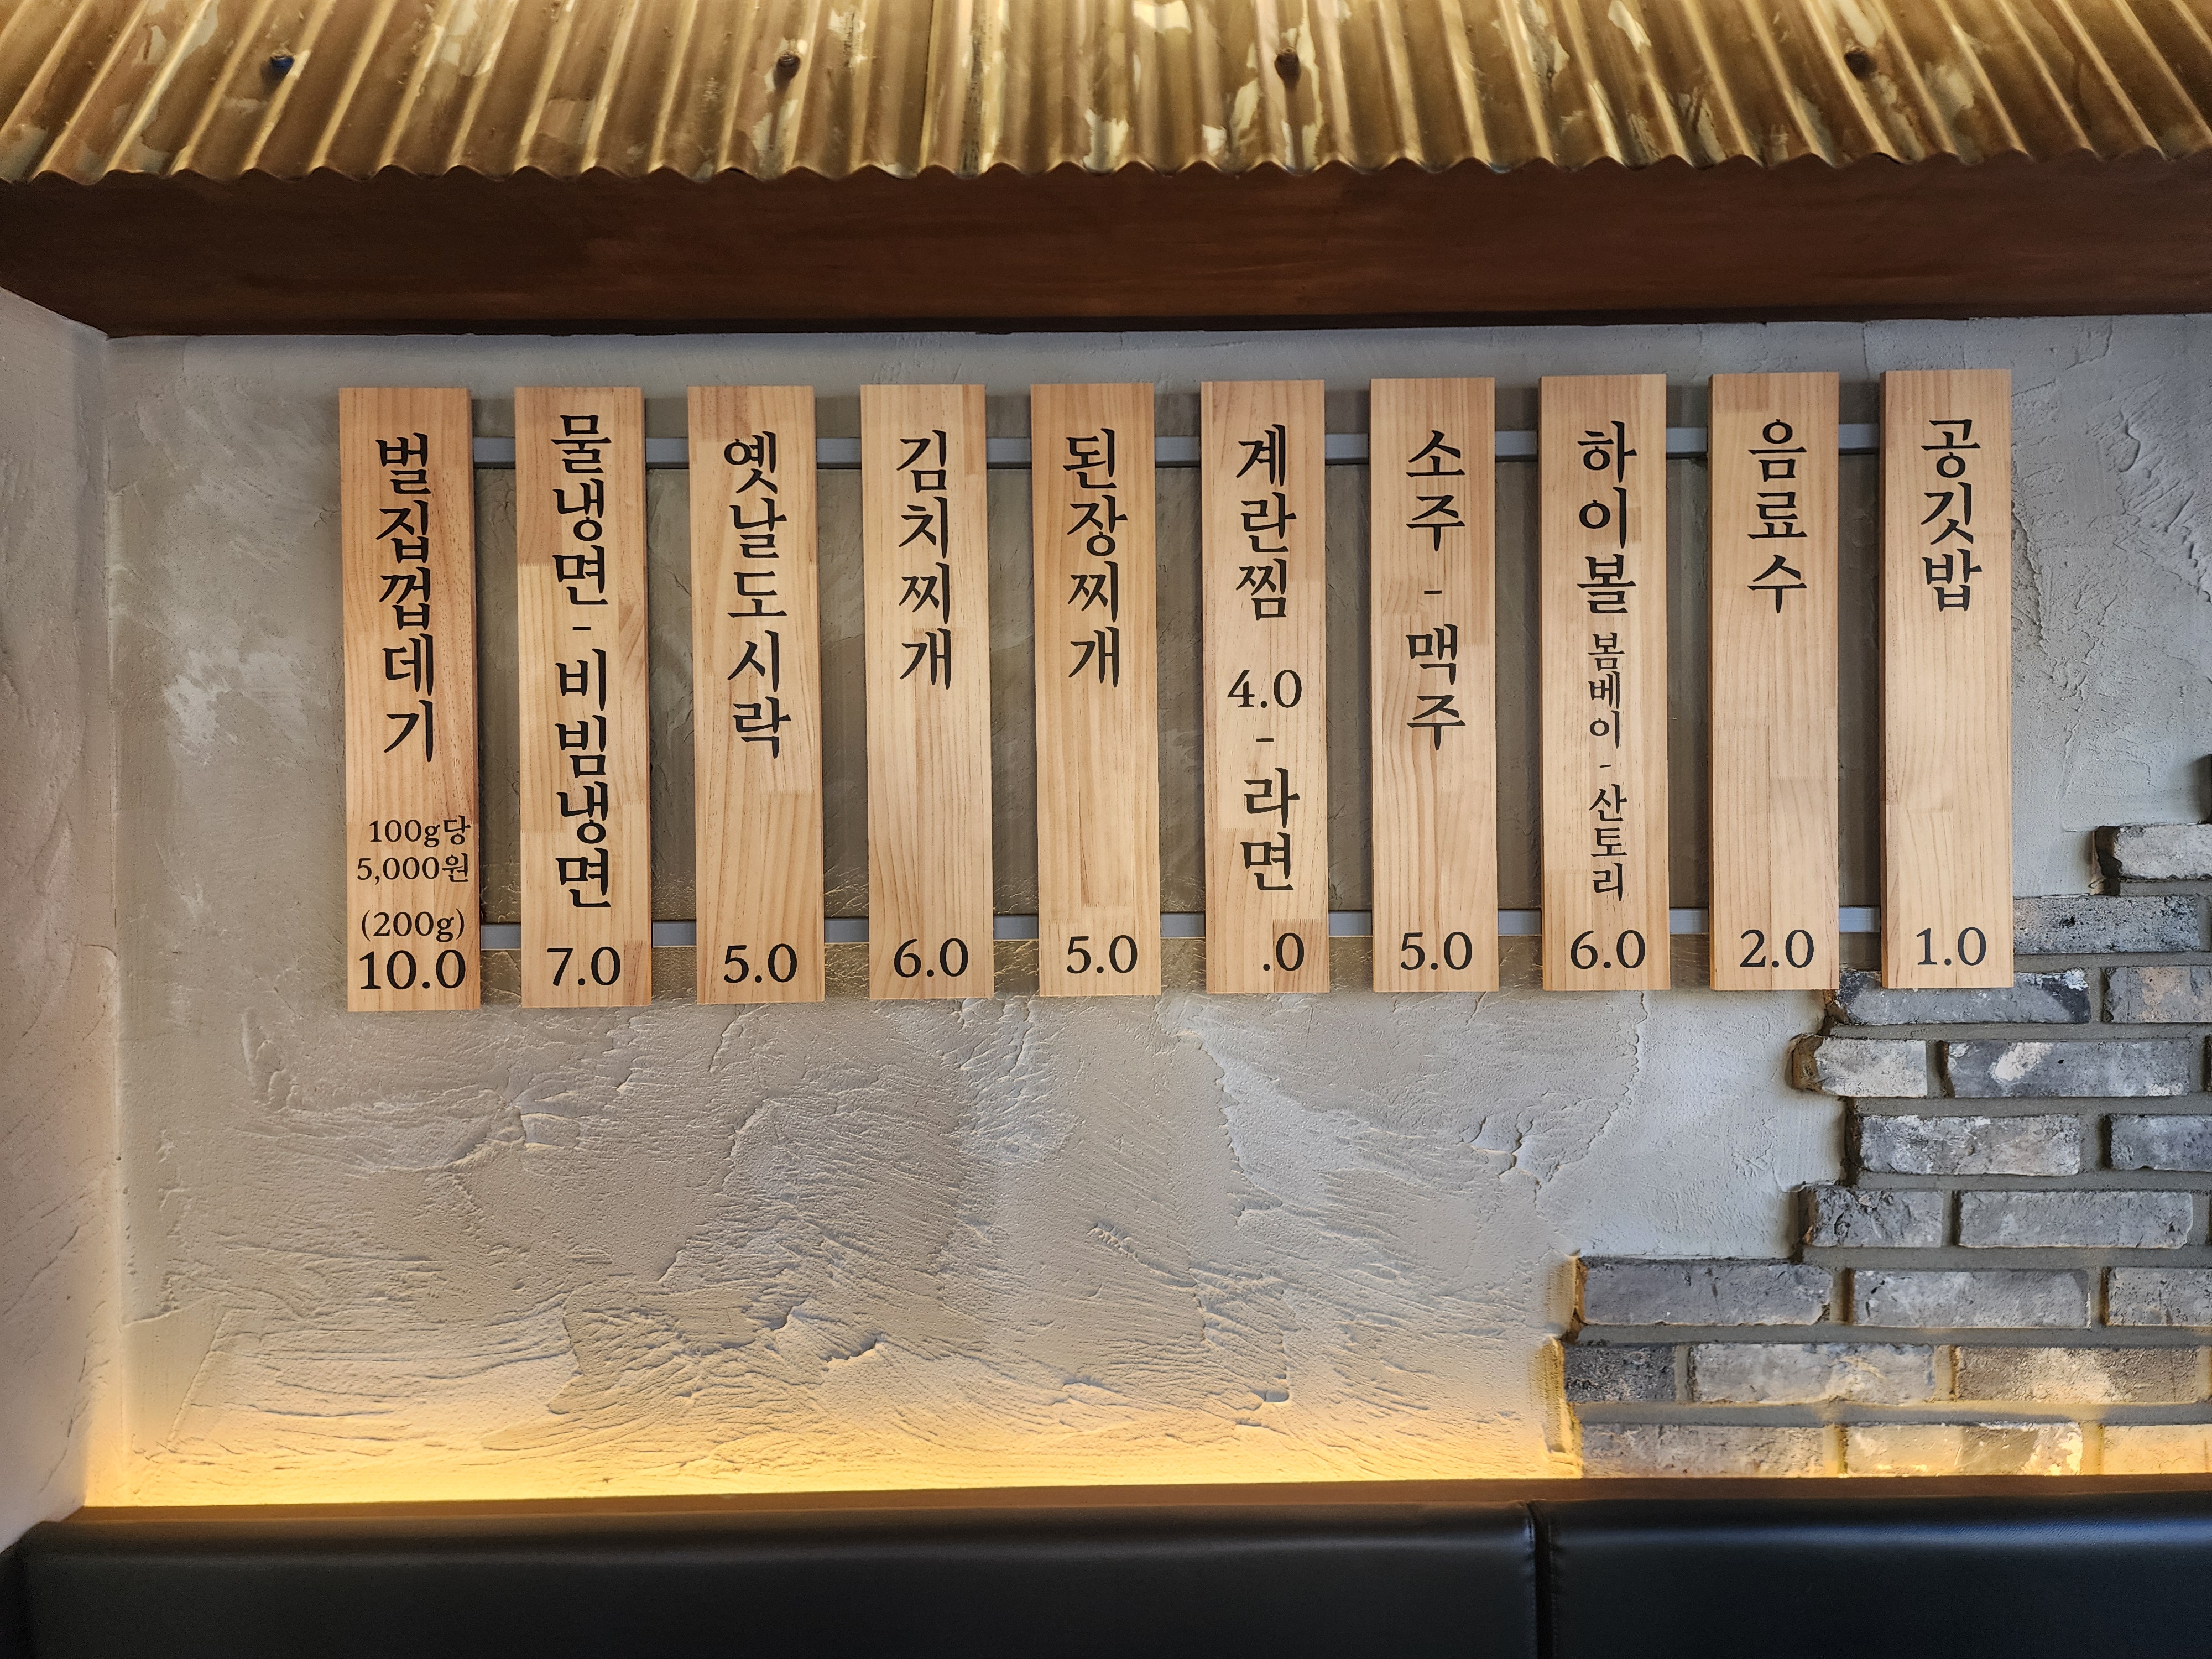 벌집껍데기
100g당
5,000원
(200g)
10.0
물냉면-비빔냉면
7.0
옛날도시락
5.0
김치찌개
6.0
된장찌개
5.0
계란찜
4.0
-
라면
.0
소주-맥주
5.0
하이볼 봄베이-산토리
6.0
음료수
2.0
공깃밥
1.0